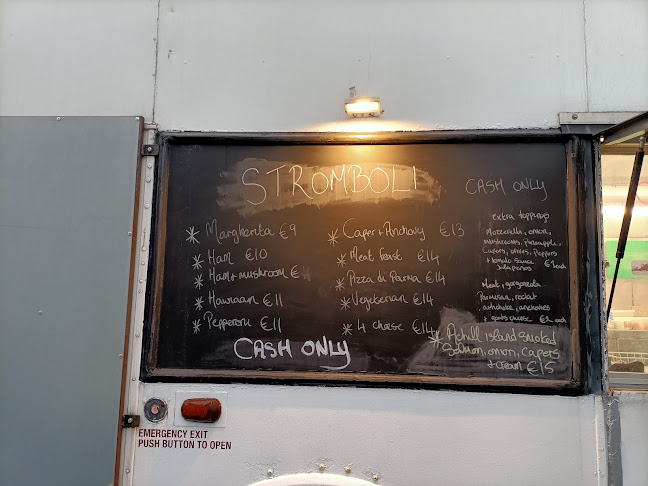 STROMBOLI
CASH ONLY
* Margherita €9
* Ham €10
* Ham + mushroom €
* Hawaiian €11
* Pepperoni €11
* Caper + Anchovy €13
* Meat feast €14
* Pizza di Parma €14
* Vegetarian €14
* 4 cheese €14
CASH ONLY
extra toppings
Mozzarella, onion,
mushrooms, pineapple,
Capers, olives, Peppers
+ tomato sauce
Jalapenos €1 each
Meat, gorgonzola
Parmesan, rocket
artichoke, anchovies
+ goats cheese €2 each
* Achill island smoked
Salmon, onion, capers
+ cream €15
EMERGENCY EXIT
PUSH BUTTON TO OPEN